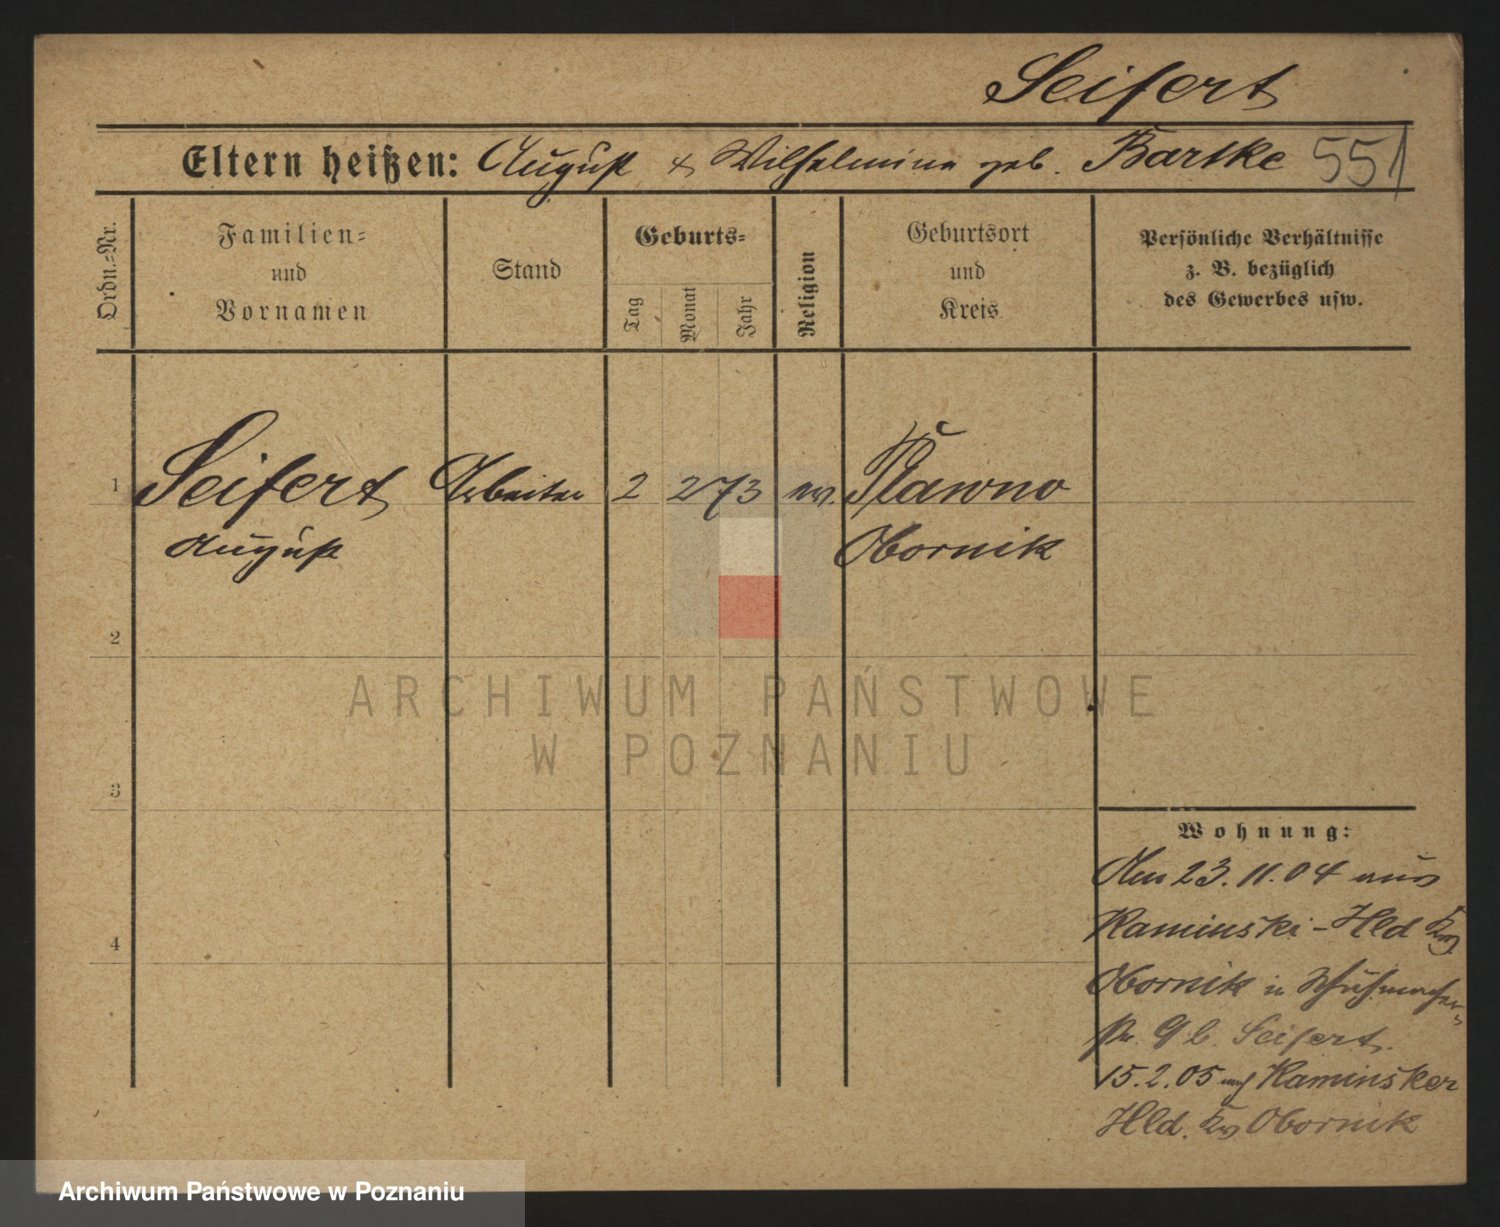 Seifert
Eltern heißen: August & Wilhelmine geb. Bartke 551
Ordn.-Nr.
Familien-
und
Vornamen
Stand
Geburts-
Tag
Monat
Jahr
Religion
Geburtsort
und
Kreis
Persönliche Verhältnisse
z. B. bezüglich
des Gewerbes usw.
1 Seifert Arbeiter 2 2 73 ev.
August Obornik
2
3
4
ARCHIWUM PAŃSTWOWE
W POZNANIU
Wohnung:
Am 23.11.04 aus
Kaminski-Hld Krs
Obornik in Schuhmacher-
str. 9 b. Seifert.
15.2.05 nach Kaminsker
Hld. Krs Obornik
Archiwum Państwowe w Poznaniu